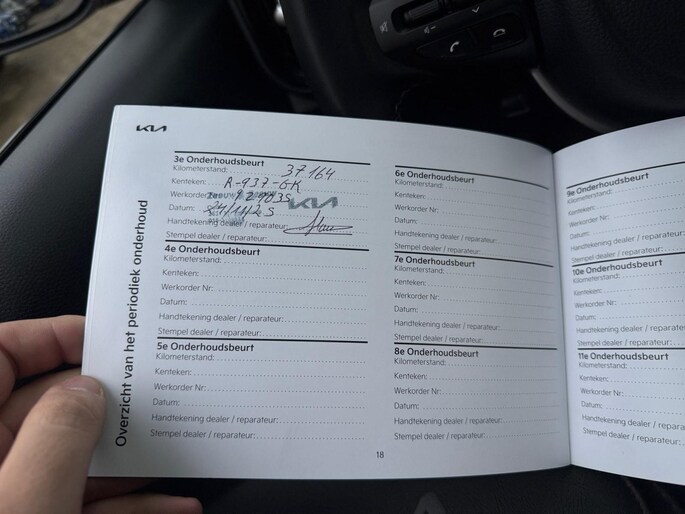 KIA
Overzicht van het periodiek onderhoud
3e Onderhoudsbeurt
Kilometerstand: 37164
Kenteken: R-937-GK
Werkorder
Datum:
Handtekening dealer / reparateur:
Stempel dealer / reparateur:
KIA
4e Onderhoudsbeurt
Kilometerstand:
Kenteken:
Werkorder Nr:
Datum:
Handtekening dealer / reparateur:
Stempel dealer / reparateur:
5e Onderhoudsbeurt
Kilometerstand:
Kenteken:
Werkorder Nr:
Datum:
Handtekening dealer / reparateur:
Stempel dealer / reparateur:
6e Onderhoudsbeurt
Kilometerstand:
Kenteken:
Werkorder Nr:
Datum:
Handtekening dealer / reparateur:
Stempel dealer / reparateur:
7e Onderhoudsbeurt
Kilometerstand:
Kenteken:
Werkorder Nr:
Datum:
Handtekening dealer / reparateur:
Stempel dealer / reparateur:
8e Onderhoudsbeurt
Kilometerstand:
Kenteken:
Werkorder Nr:
Datum:
Handtekening dealer / reparateur:
Stempel dealer / reparateur:
18
9e Onderhoudsbeurt
Kilometerstand:
Kenteken:
Werkorder Nr:
Datum:
Handtekening dealer / reparate
Stempel dealer / reparateur:
10e Onderhoudsbeurt
Kilometerstand:
Kenteken:
Werkorder Nr:
Datum:
Handtekening dealer / reparate
Stempel dealer / reparateur:
11e Onderhoudsbeurt
Kilometerstand:
Kenteken:
Werkorder Nr:
Datum:
Handtekening dealer / repara
Stempel dealer / reparateur: